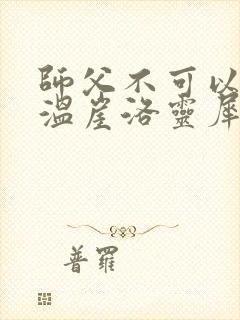 師父不可以
溫崖洛靈犀
普羅